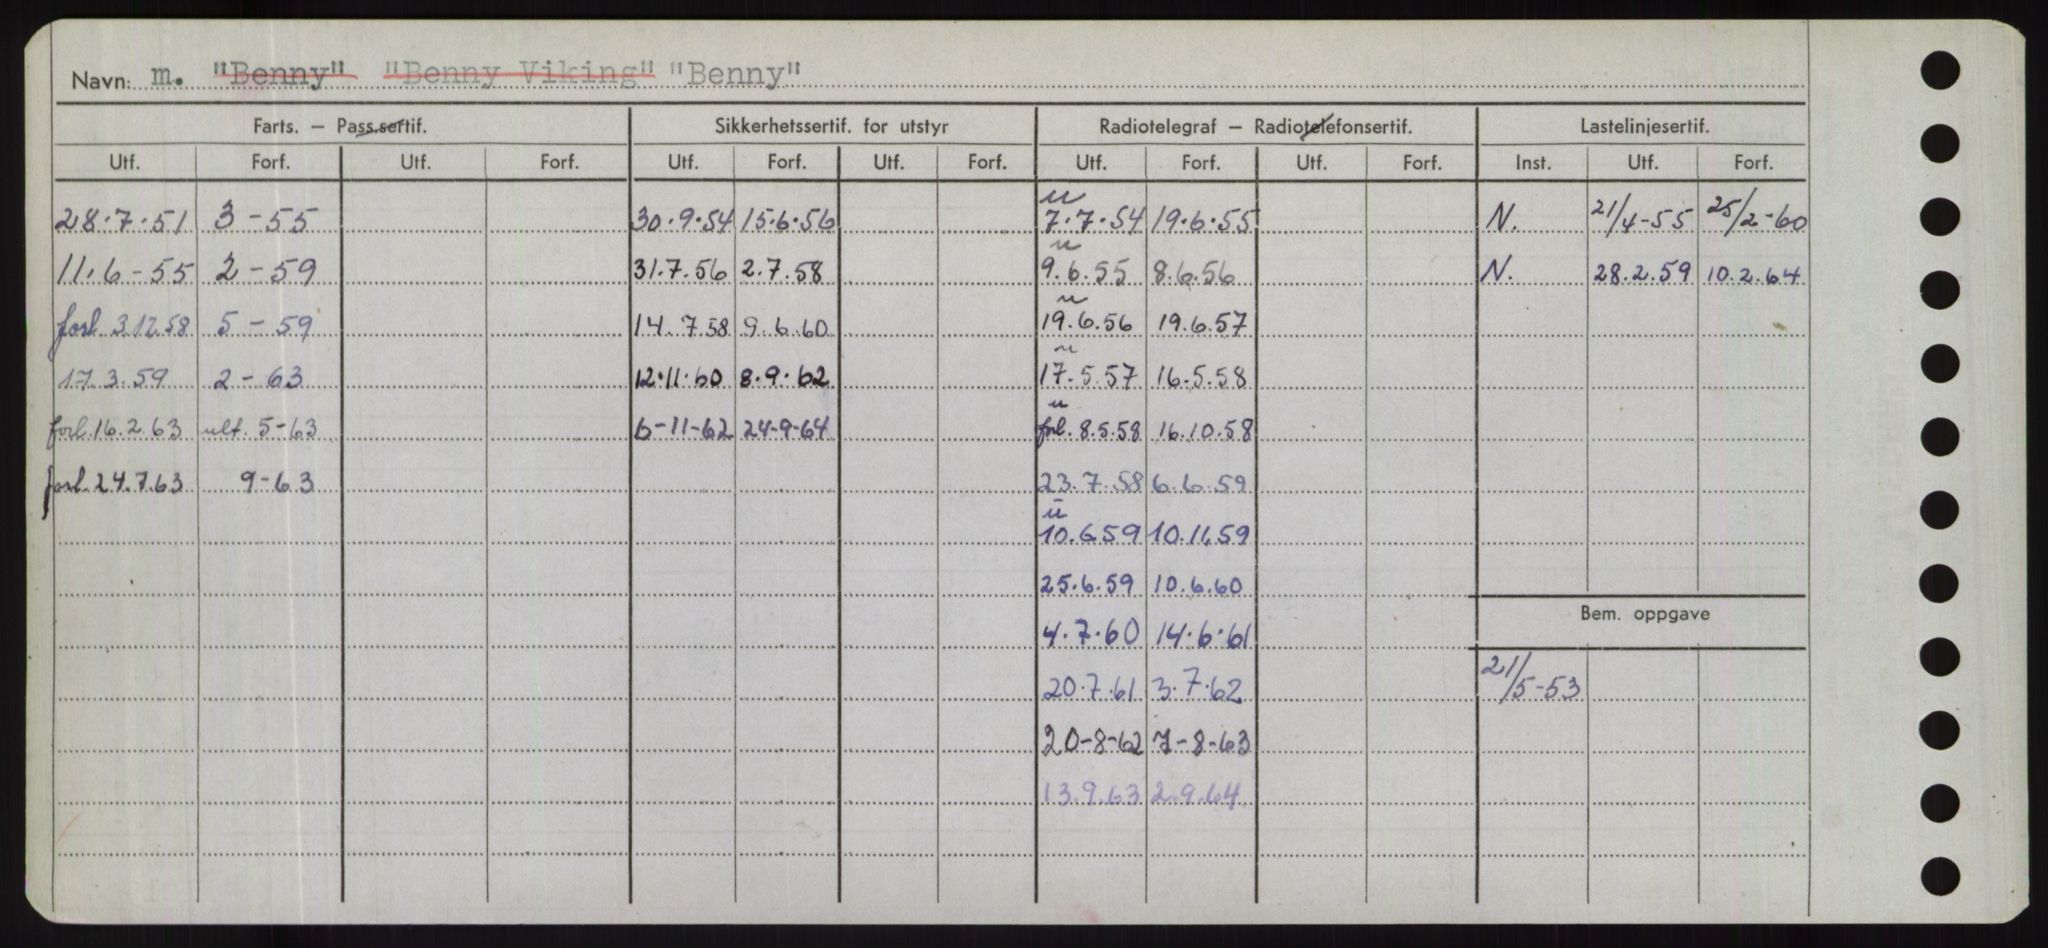 Navn: m. "Benny" "Benny Viking" "Benny"
Farts. – Pass.sertif. Sikkerhetssertif. for utstyr Radiotelegraf – Radiotelefonsertif. Lastelinjesertif.
Utf. Forf. Utf. Forf. Utf. Forf. Utf. Forf. Utf. Forf. Utf. Forf. Inst. Utf. Forf.
u
28.7.51 3-55 30.9.54 15.6.56 7.7.54 19.6.55 N. 21/4-55 25/2-60
u
11.6-55 2-59 31.7.56 2.7.58 9.6.55 8.6.56 N. 28.2.59 10.2.64
u
forl. 3.12.58 5-59 14.7.58 9.6.60 19.6.56 19.6.57
u
17.3.59 2-63 12.11.60 8.9.62 17.5.57 16.5.58
u
forl. 16.2.63 ult. 5-63 6-11-62 24-9-64 forl. 8.5.58 16.10.58
forl. 24.7.63 9-63 23.7.58 6.6.59
u
10.6.59 10.11.59
25.6.59 10.6.60
Bem. oppgave
4.7.60 14.6.61
20.7.61 3.7.62 21/5-53
20-8-62 7-8-63
13.9.63 2.9.64